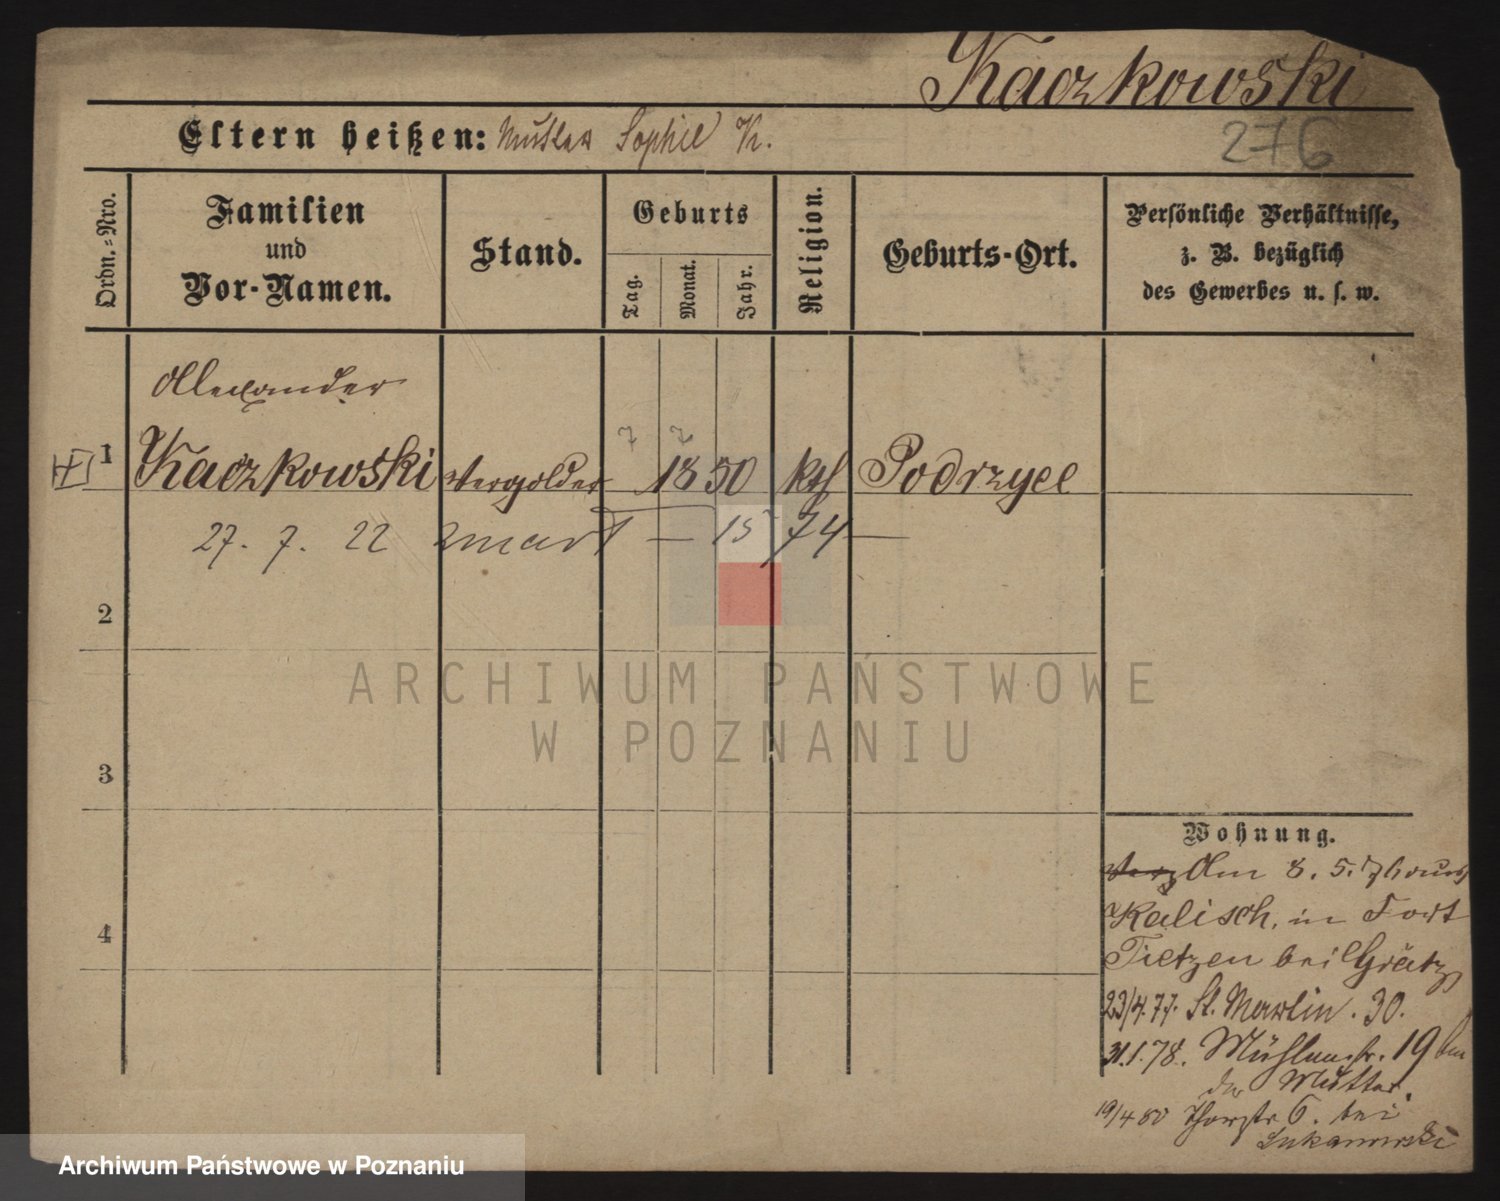 Kaczkowski
Eltern heißen: Mutter Sophie K.
276
Ordn.-Nro.
Familien
und
Vor-Namen.
Stand.
Geburts
Tag.
Monat.
Jahr.
Religion.
Geburts-Ort.
Persönliche Verhältnisse,
z. B. bezüglich
des Gewerbes u. s. w.
Alexander
7 7
1 Kaczkowski Vergolder 1850 kth Podrzyce
27. 7. 22 zmarł — 15 74 —
2
ARCHIWUM PAŃSTWOWE
W POZNANIU
3
Wohnung.
Am 8. 5. 76 aus
Kalisch, in Fort
Tietzen bei Grätz
4
23/4.77. St. Martin. 30.
31.1.78. Mühlenstr. 19 bei
der Mutter.
19/4 80 Thorstr 6. bei
Lukanowski
Archiwum Państwowe w Poznaniu